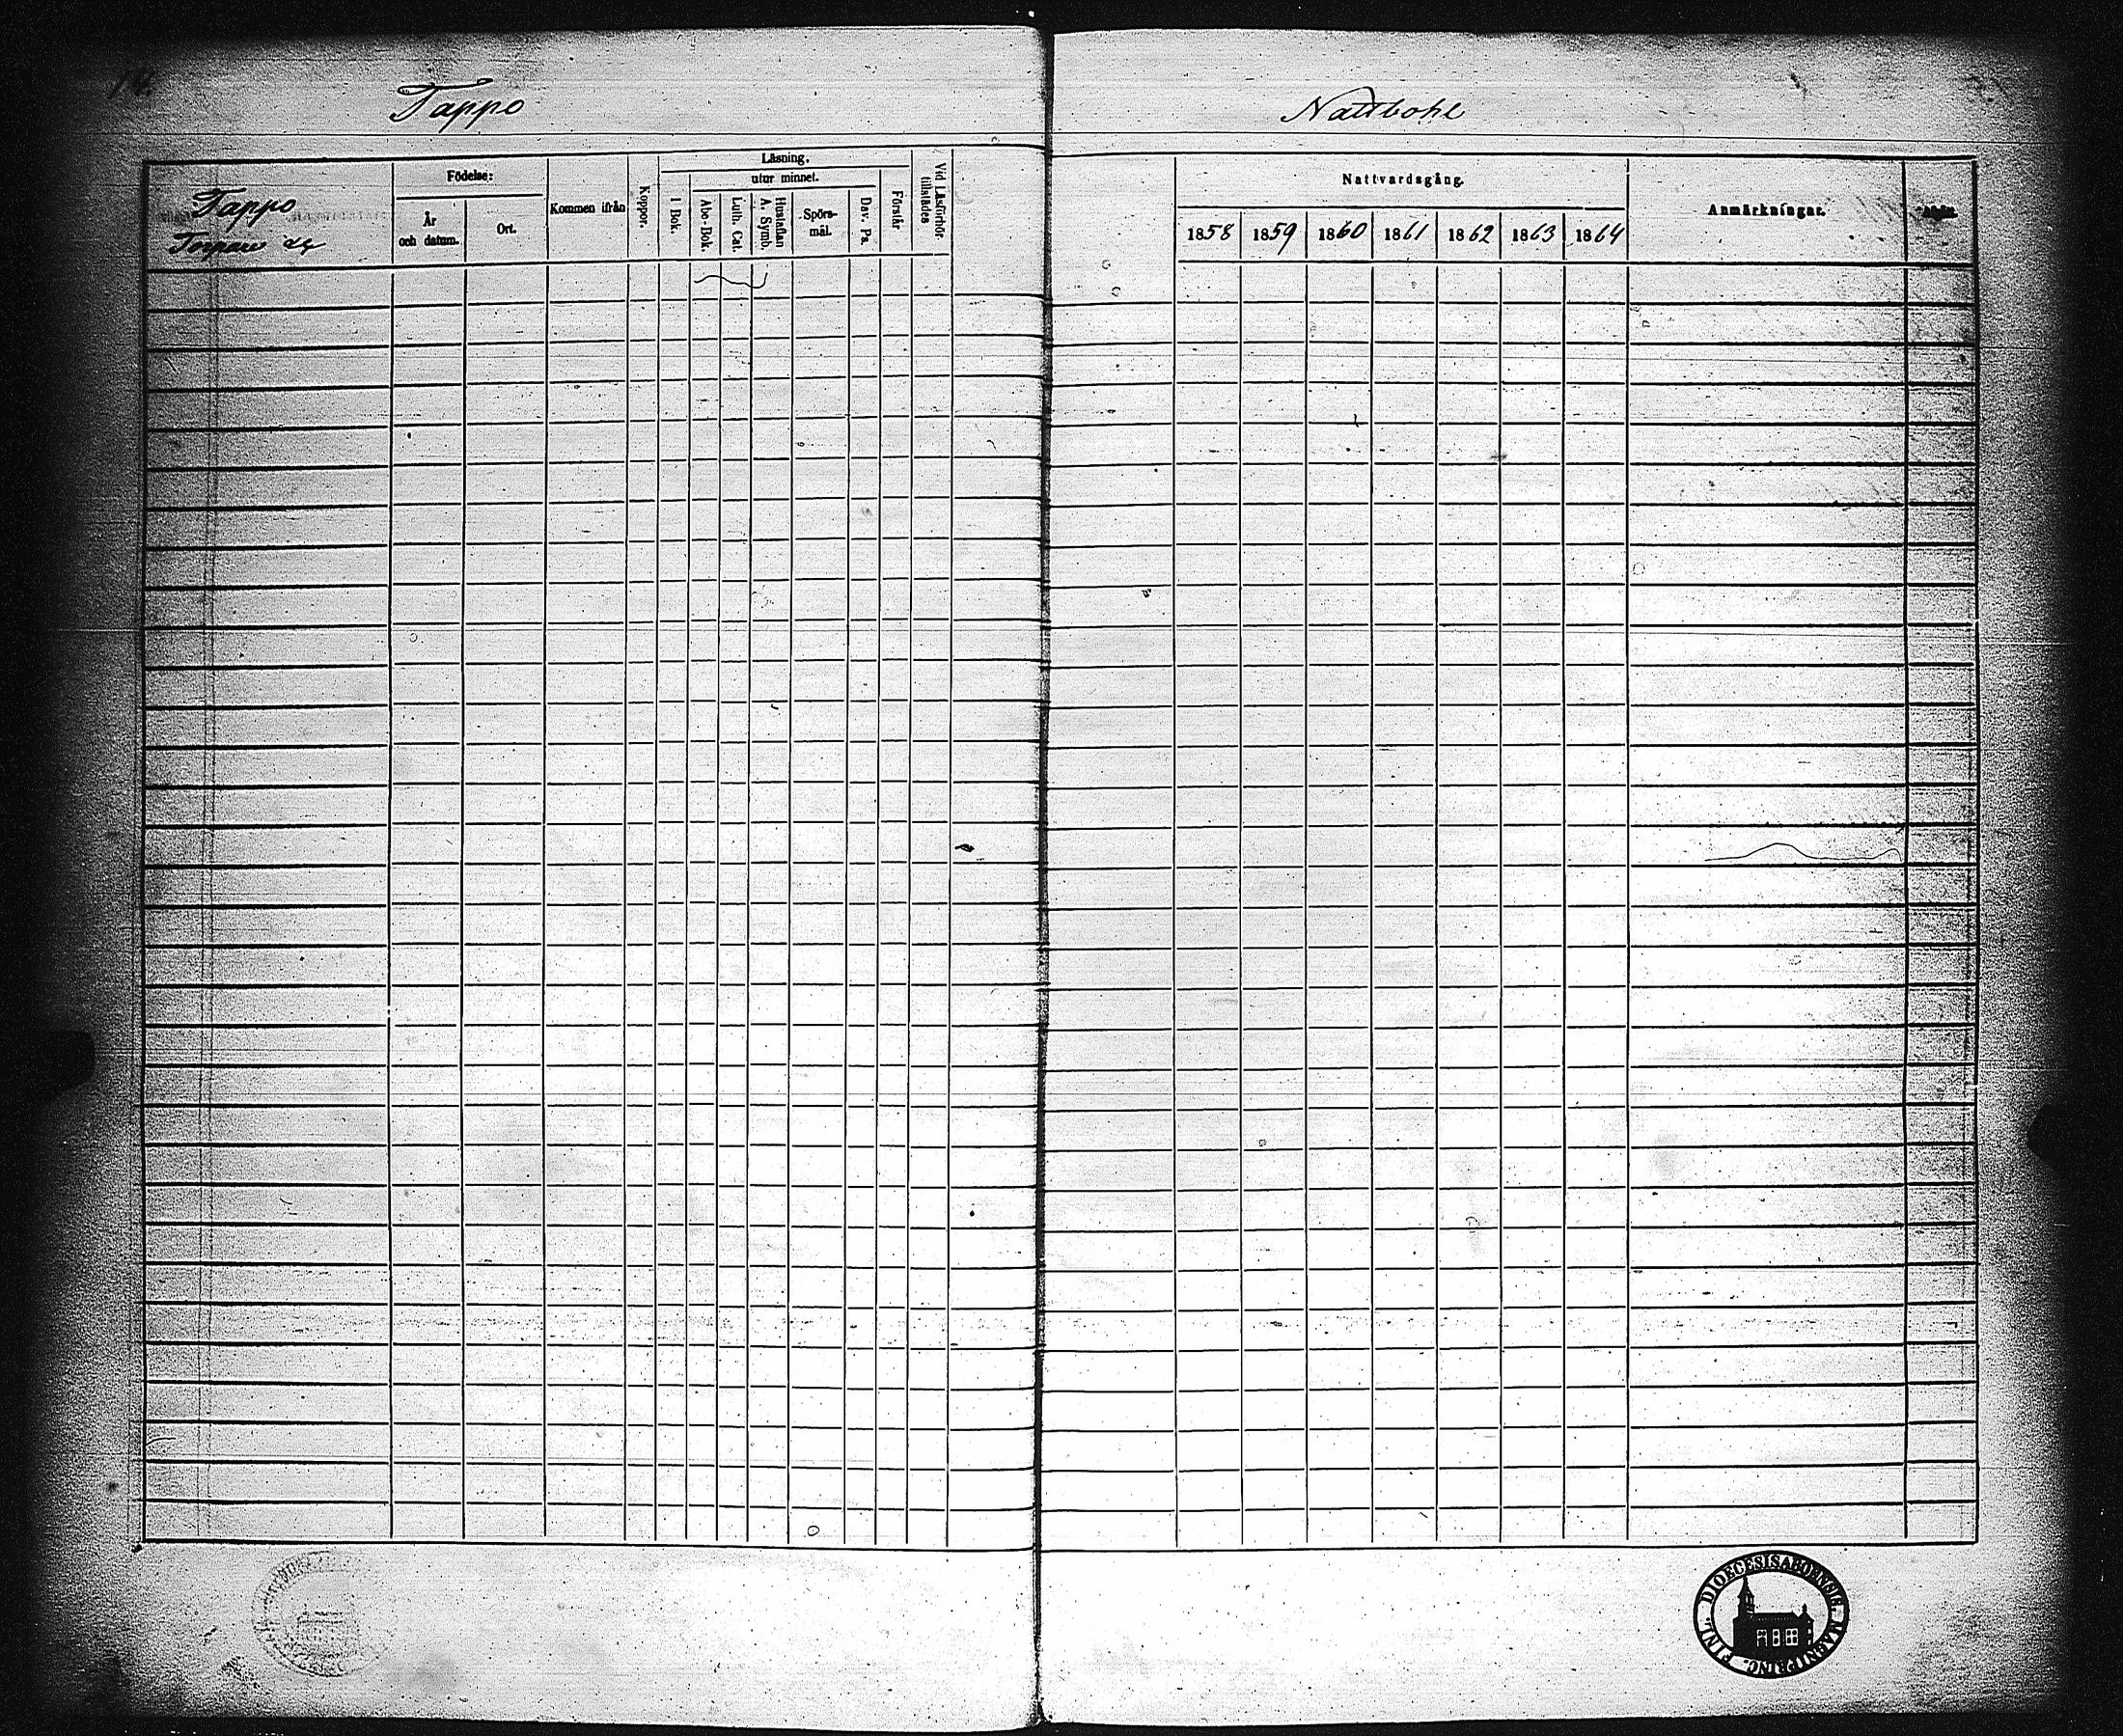 Tappo
Nattbohl
Tappo
Torpare
Födelse:
År
och datum.
Ort.
Kommen ifrån
Koppor.
Läsning.
utur minnet.
I Bok.
Abc-Bok.
Luth. Cat.
Hustaflan
A. Symb.
Spörs-
mål.
Dav. Ps.
Förstår
Vid Läsförhör.
tillstädes
Nattvardsgång.
1858 1859 1860 1861 1862 1863 1864
Anmärkningar.
FINL. DIOECESIS ABOENSIS. MAGNI PRINC.